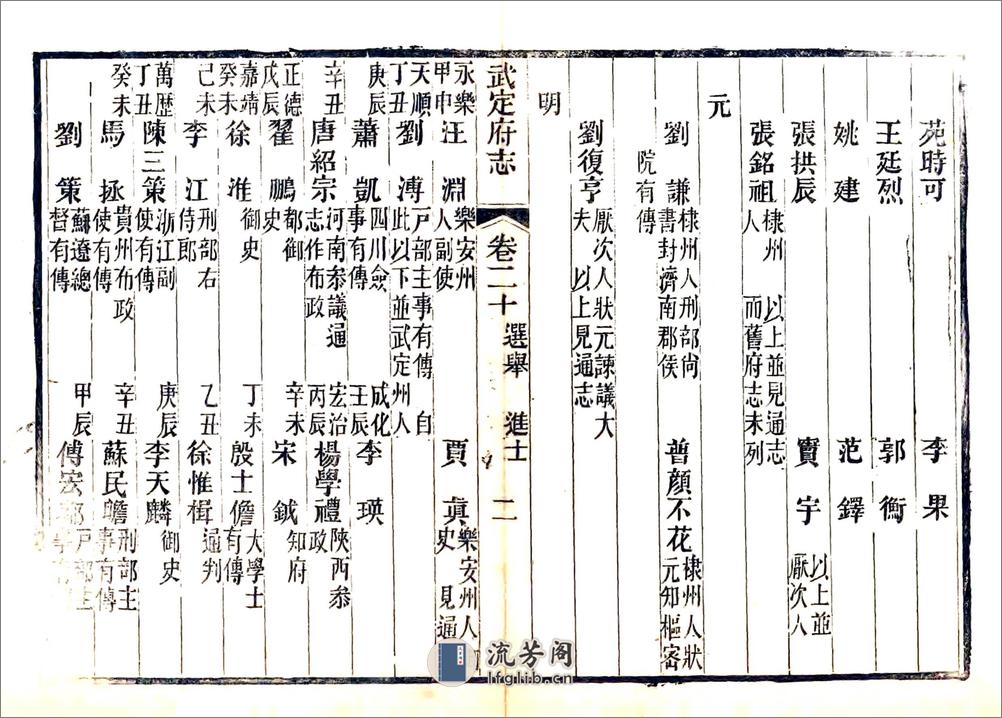 苑時可 李果
王廷烈 郭衡
姚建 范鐸
張拱辰 竇宇 以上並厭次人
張銘祖 棣州人 以上並見通志而舊府志未列
元
劉謙 棣州人刑部尚書封濟南郡侯 普顏不花 棣州人狀元知樞密
院有傳
劉復亨 厭次人狀元諫議大夫 以上見通志
明
武定府志 卷二十 選舉 進士 二
永樂甲申 汪淵 樂安州人副使 賈眞 樂安州人 史 見通
天順丁丑 劉溥 戶部主事有傳 自此以下並武定州人
庚辰 蕭凱 四川僉事有傳 成化壬辰 李瑛
辛丑 唐紹宗 河南參議通志作布政 宏治丙辰 楊學禮 陝西參政
正德戊辰 翟鵬 都御史 辛未 宋鉞 知府
嘉靖癸未 徐淮 御史 丁未 殷士儋 大學士有傳
己未 李江 刑部右侍郎 乙丑 徐惟楫 通判
萬歷丁丑 陳三策 浙江副使有傳 庚辰 李天麟 御史
癸未 馬拯 貴州布政使有傳 辛丑 蘇民瞻 刑部主事有傳
劉策 薊遼總督有傳 甲辰 傅宏 戶部主事有
流芳阁
lfglib.cn